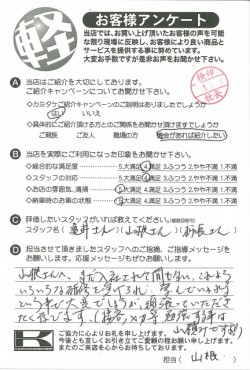 軽
お客様アンケート
当店では、お買い上げ頂いたお客様の声を可能
な限り現場に反映し、お客様により良い商品と
サービスを提供する事に努めています。
大変お手数ですが是非お声をお聞かせ下さい。
検印
社長
A 当店はご紹介を大切にしております。
ご紹介キャンペーンについてお聞かせ下さい。
◇カミタケご紹介キャンペーンのご説明はありましたでしょうか
はい いいえ
◇具体的にご紹介頂ける方とのご関係をお聞かせ頂けますでしょうか
ご親族 ご友人 職場の方 機会があれば紹介したい
B 当店を実際にご利用になった印象をお聞かせ下さい。
◇総合的な満足度 5.大満足 4.満足 3.ふつう 2.やや不満 1.不満
◇スタッフの対応 5.大満足 4.満足 3.ふつう 2.やや不満 1.不満
◇お店の雰囲気、清潔 5.大満足 4.満足 3.ふつう 2.やや不満 1.不満
◇納車時のお車の状態 5.大満足 4.満足 3.ふつう 2.やや不満 1.不満
C 評価したいスタッフがいれば教えてください。(複数回答可)
スタッフ名( 亀井さん )( 山根さん )( 店長さん )
D 担当させて頂きましたスタッフへのご指摘、ご指導メッセージを
お願いします。応援メッセージもぜひお願いします。
山根さんへ、まだ入社されて間もない、これから
いろいろな研修を受けられ、学んでいかれる
という事で大変でしょうが、頑張っていただき
たく存じます。
K
ご協力に心よりお礼を申し上げます。
今後とも宜しくお引き立てご愛顧の程お願い申し上げます。
またのご来店を心からお待ちしております。
担当( 山根 )